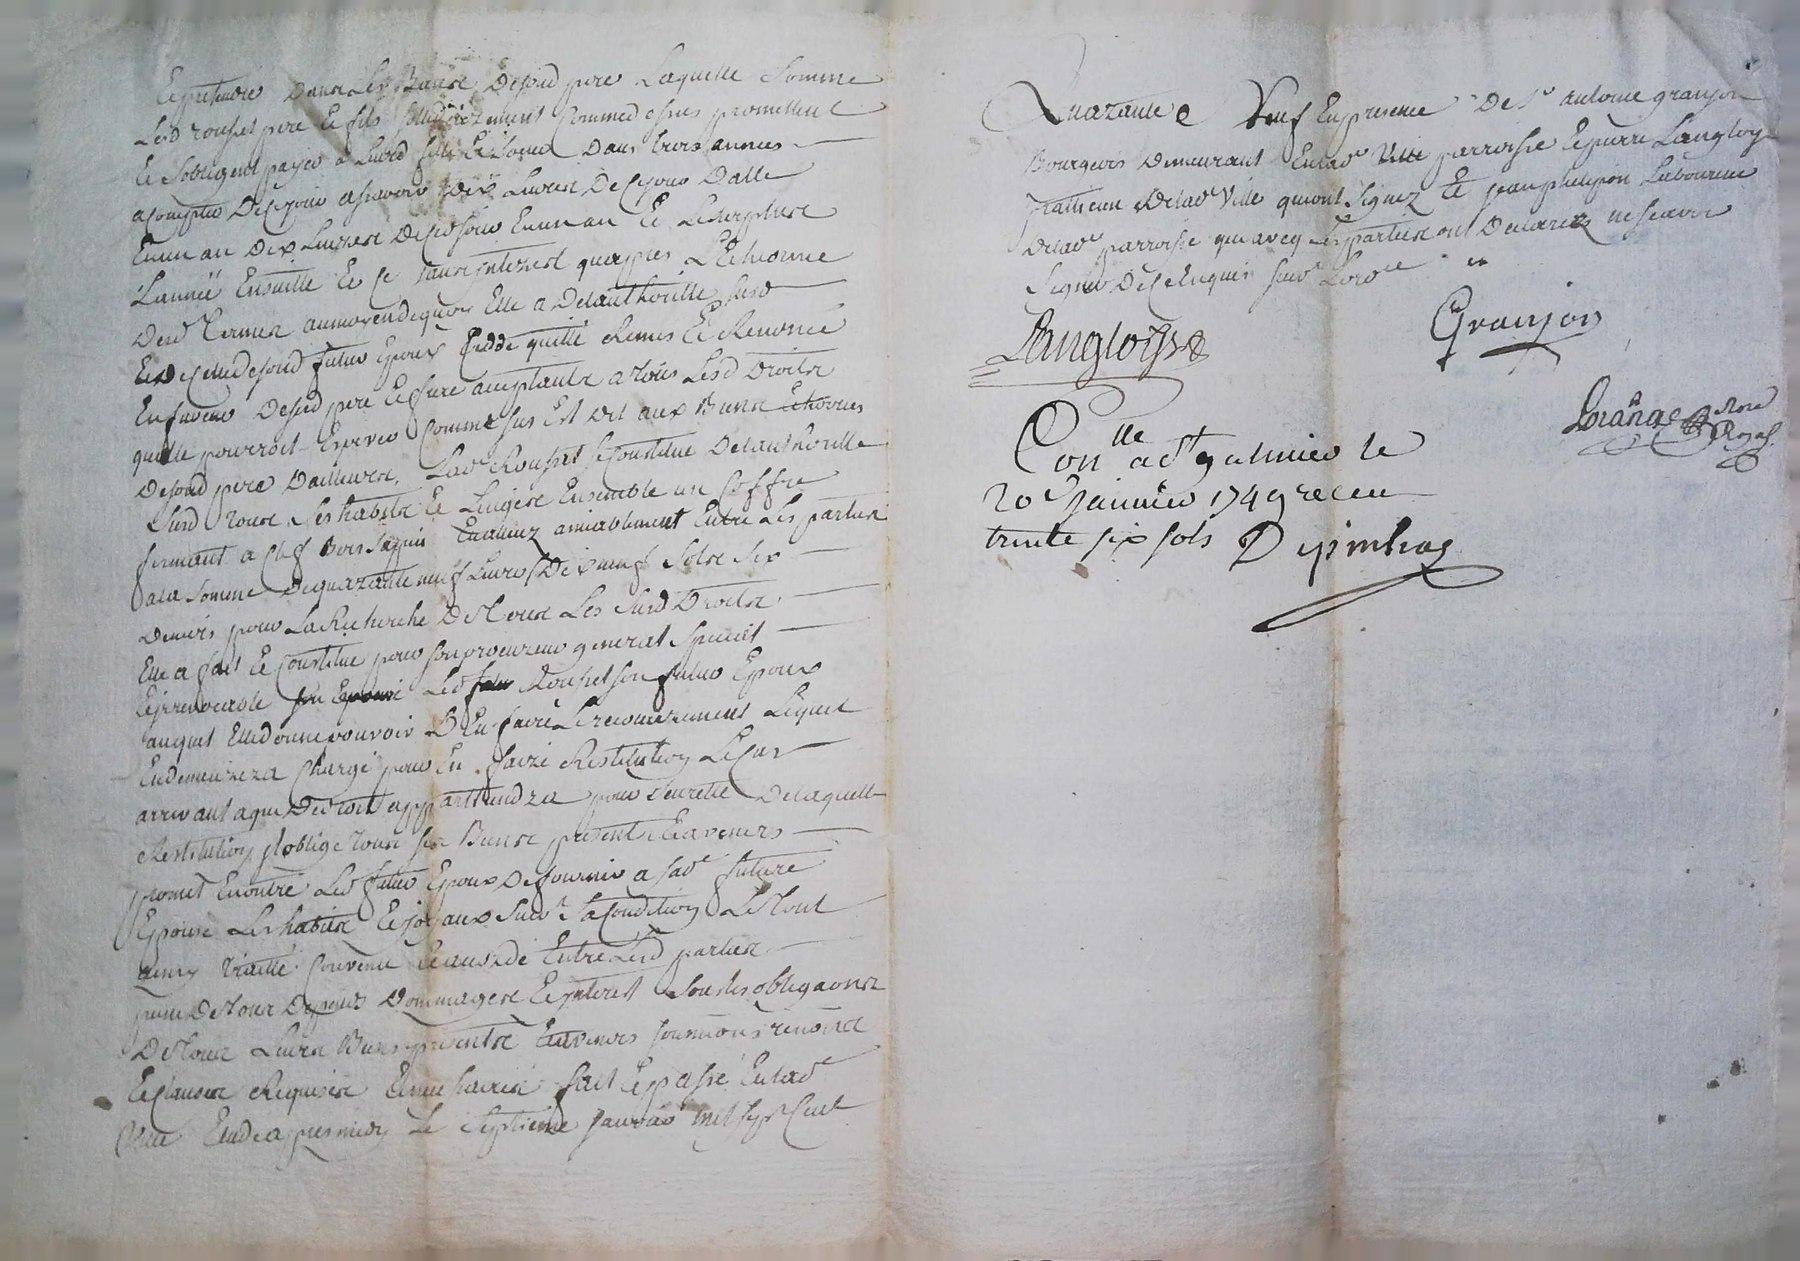 Et pretendre Dans Les Biens Desond pere Laquelle Somme
Lesd rouset pere Et fils sollidairement Comme dessus promettent
Et Sobligent payer a Lad Dans trois annees
a Compter De ce jour a scavoir dix Livres De ce jour Dalle
En un an Dix Livres De cedjour En un an Et Le surplus
L'année Ensuitte Et Ce sans interest quapres L'Echeance
Desd Termes au moyen de quoy Elle a De Lauthoritté Susd
Et De celle desond futur Epoux Cedde quitte Remis Et Renoncé
En faveur Desond pere Et frere acceptants a tous Lesd Droits
quelle pourroit Esperer Comme sus Est dit aux Biens
Desond pere Dailleurs, Lade Rouset se Constitue De Lauthoritte
Susd tous Ses habits Et Linges Ensemble un Coffre
fermant a Clef Bois Sappin Evaluez amiablement Entre Les parties
a la Somme De quarante neuf Livres Dix neuf Sols Six
Deniers pour La Recherche De tous Les Susd Droits
Elle a fait Et Constitue pour son procureur general Special
Et irrevocable Led Rouset son futur Epoux
auquel Elle donne pouvoir D'En faire Le recouvrement Lequel
En demeurera Chargé pour En faire Restitution Le Cas
arrivant a qui De droit appartiendra pour seureté De laquelle
Restitution il oblige tous ses Biens presents Et avenirs
promet En outre Led futur Epoux De fournir a sade future
Epouse Les habits Et joyaux suivt Sa Condition Le tout
ainsy traitté Convenu Et accordé Entre Lesd parties
peine De tous Depens Dommages Et interest Sous les obligaons
De tous Leurs Biens presents Et avenirs soumions renons
Et Clauses Requises Et necessaires fait Et passé En lade
Ville Etude apres midy Le Septieme janvier mil sept Cent
Quarante e Neuf En presence De Sr antoine granjon
Bourgeois Demeurant En lade Ville parroisse Et pierre Langloys
praticien De lade Ville qui ont Signez Et jean philipon Laboureur
De lade parroisse qui avecq Les parties ont Declarez ne scavoir
Signer De Ce Enquis suivt Lordce
Langloys
Granjon
Nore
Royal
Conlle a St galmier le
20e janvier 1749 receu
trente six sols